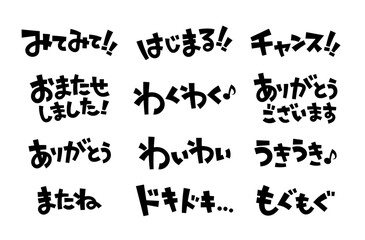 みてみて!!
はじまる!!
チャンス!!
おまたせ
しました!
わくわく♪
ありがとう
ございます
ありがとう
わいわい
うきうき♪
またね
ドキドキ...
もぐもぐ